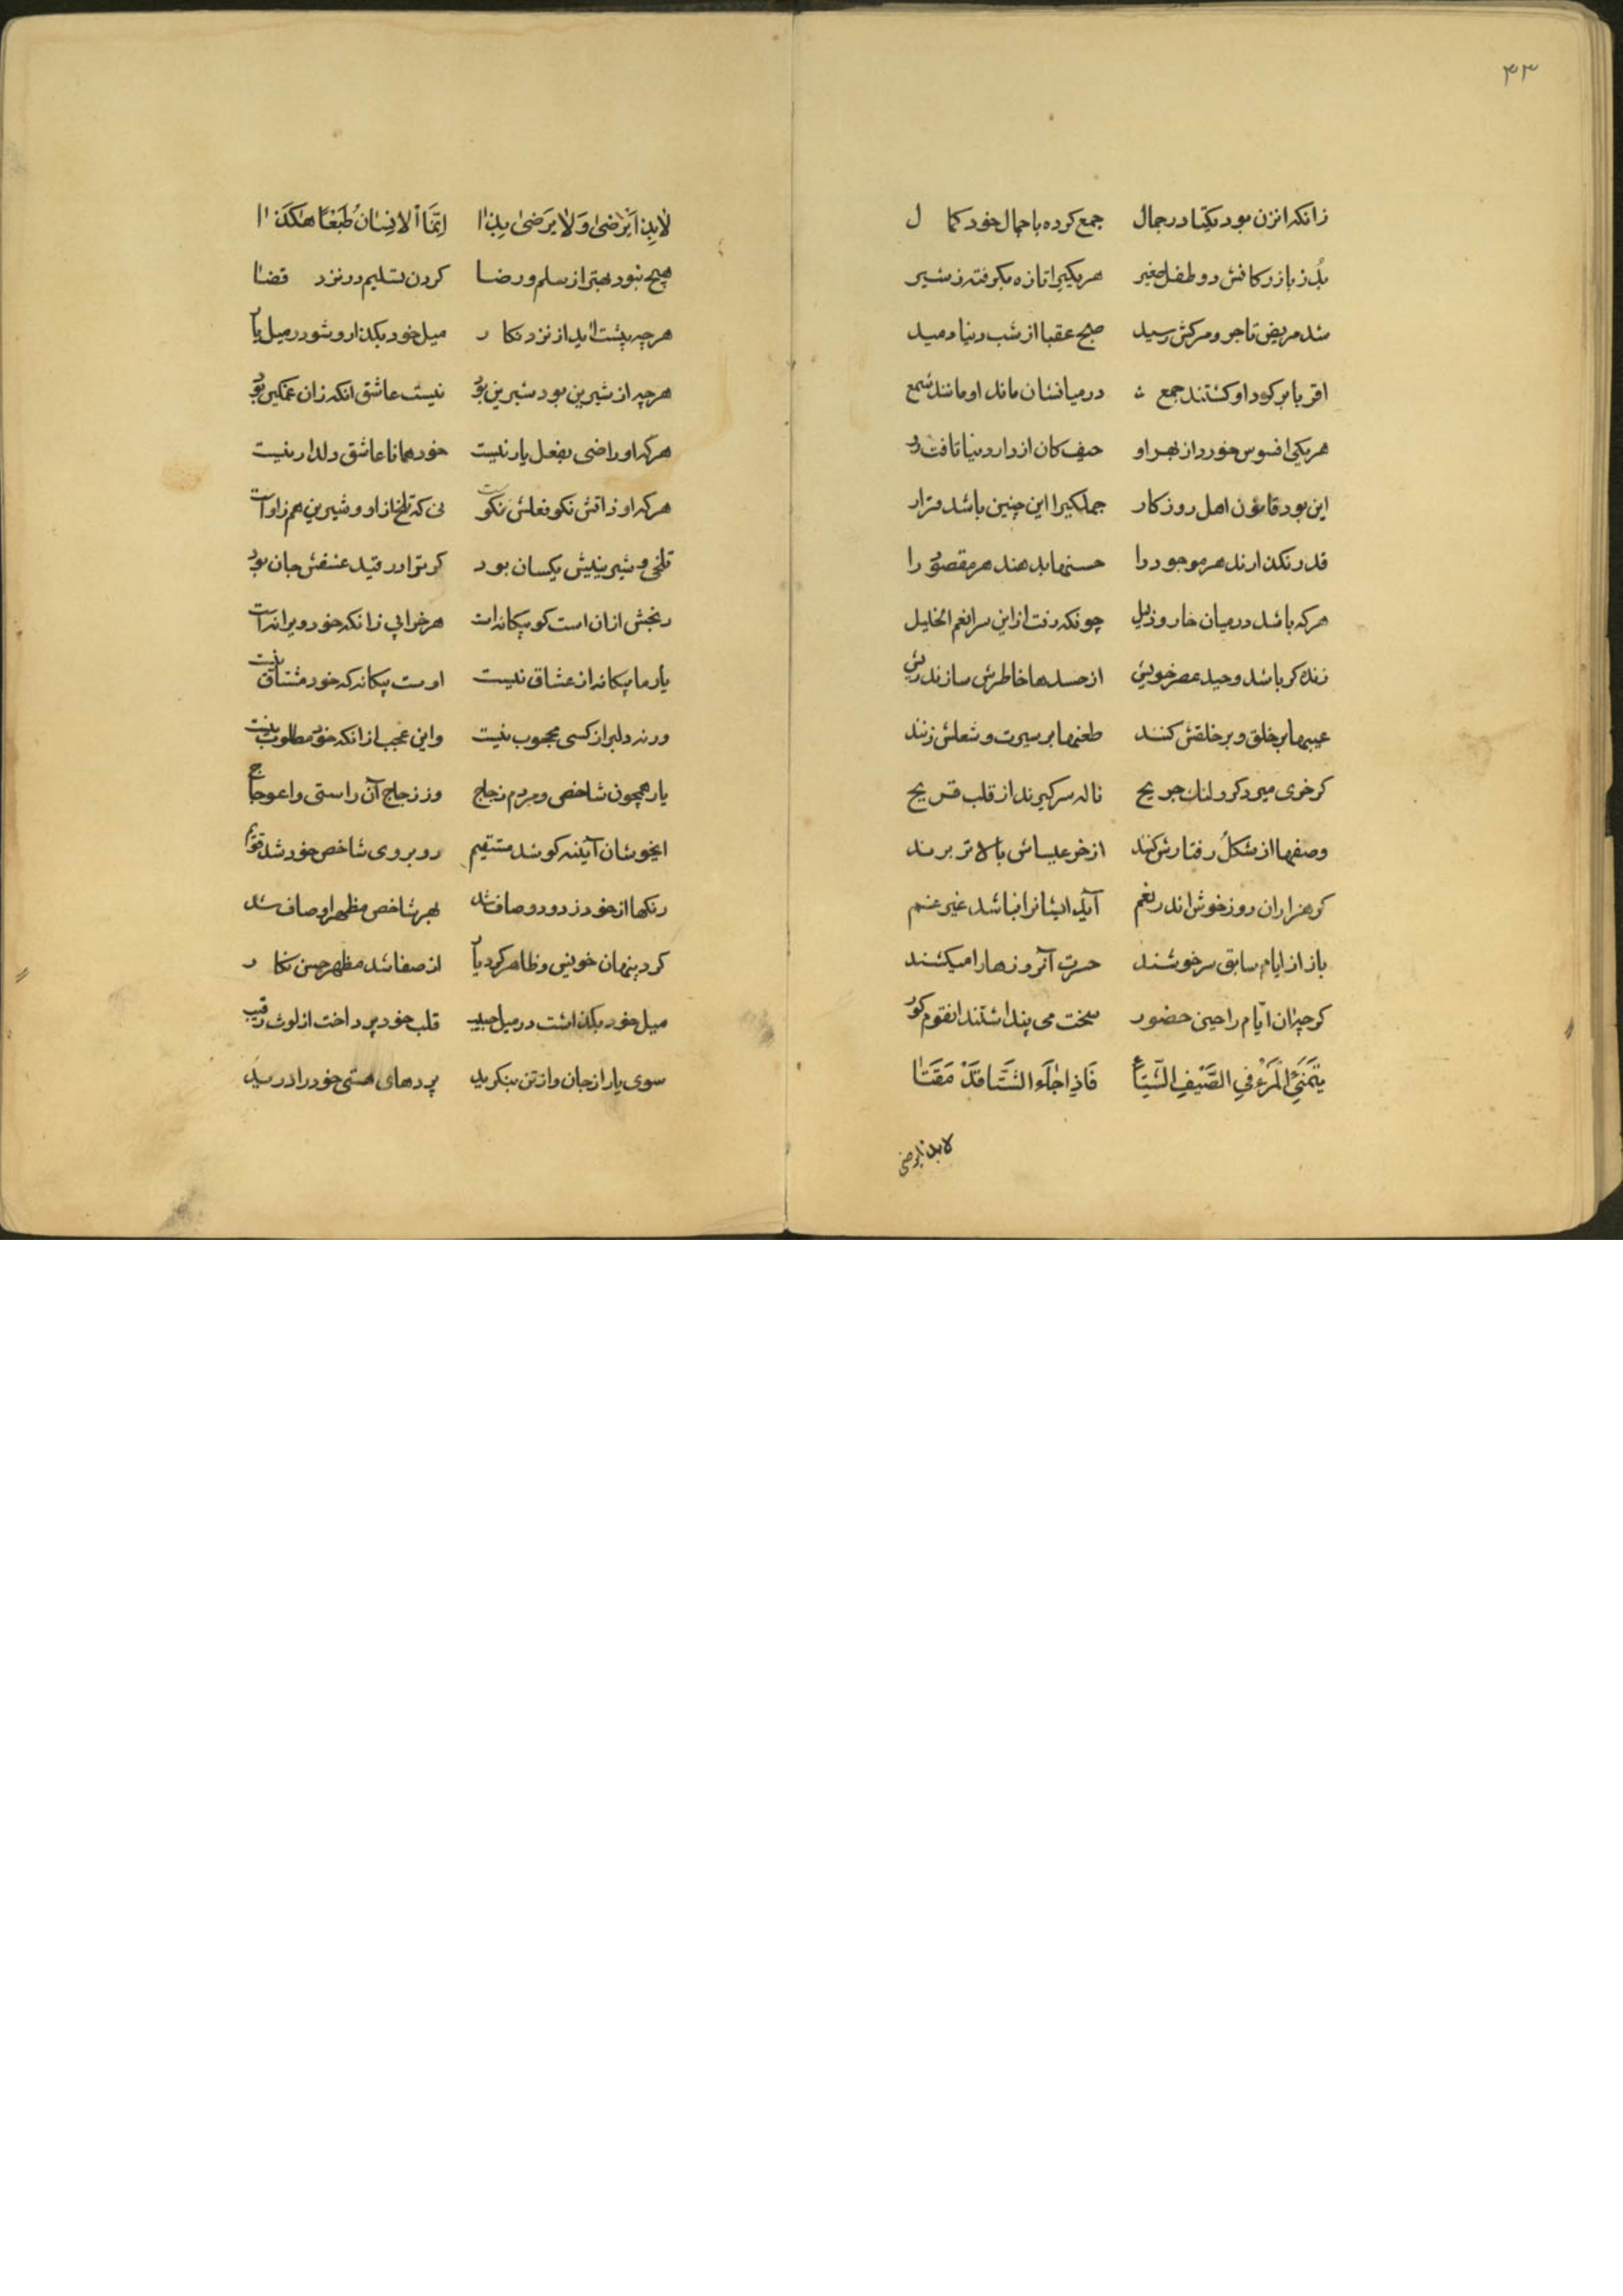 ۴۳
زانکه انزن بود یکتا در جمال جمع کرده با جمال خود کمال
بُد ز بازرکانش دو طفل صغیر هر یکیرا تازه بگرفته ز شیر
شد مریض تاجر و مرکش رسید صبح عقبا از شب دنیا دمید
اقربا بر کرد او کشتند جمع در میانشان ماند او مانند شمع
هر یکی افسوس خورد از بهر او حیف کان از دار دنیا تافت رو
این بود قانون اهل روزکار جملکیرا این چنین باشد قرار
قدر نکذارند هر موجود را حسنها بدهند هر مقصود را
هر که باشد در میان خار و ذلیل چونکه رفت از این سرا نعم الخلیل
زنده کر باشد وحید عصر خویش از حسدها خاطرش سازند ریش
عیبها بر خلق و بر خلقش کنند طعنها بر سیرت و شغلش زنند
کر خری میرد کر و لنك جریح ناله سر کیرند از قلب قریح
وصفها از شکل رفتارش کنند از خر عیساش بالاتر برند
کر هزاران روز خوش اند ر نعم آید ایشانرا نباشد غیر غم
باز از ایام سابق سرخوشند حسرت آنروزها را میکشند
کر چه ان ایام را حین حضور سخت می پنداشتند انقوم کور
یَتَمَنَّی الْمَرْءُ فِی الصَّیْفِ الشِّتَاءَ فَاِذِا جٰاءَ الشِّتَا قَدْ مَقَتٰا
لا بذا یرضی
لٰا بِذا یَرْضیٰ وَ لٰا یَرْضیٰ بِذٰا اِنَّمَا الْاِنِسٰانُ طَبْعًا هٰکَذٰا
هیچ نبود بهتر از سلم و رضا کردن تسلیم در نزد قضا
هر چه پیشت اید از نزد نکار میل خود بکذار و شو در میل یار
هر چه از شیرین بود شیرین بود نیست عاشق انکه زان غمکین بود
هر که او راضی بفعل یار نیست خود همانا عاشق دلدار نیست
هر که او ذاتش نکو فعلش نکوست نی که تلخ از او و شیرین هم زاوست
تلخی و شیرینیش یکسان بود کر ترا در قید عشقش جان بود
رنجش ازان است کو بیکانه است هر خرابی زانکه خود ویرانه است
یار ما بیکانه از عشاق نیست اوست بیکانه که خود مشتاق نیست
ورنه دلبر از کسی محجوب نیست واین عجب از انکه خود مطلوب نیست
یار همچون شاخص و مردم زجاج وز زجاج آن راستی و اعوجاج
ایخوشان آینه کو شد مستقیم روبروی شاخص خود شد قویم
رنکها از خود زدود و صاف شد بهر شاخص مظهر اوصاف شد
کرد پنهان خویش و ظاهر کرد یار از صفا شد مظهر حسن نکار
میل خود بکذاشت در میل حبیب قلب خود پرداخت از لوث رقیب
سوی یار از جان و از تن بنکرید پردهای هستی خود را درید